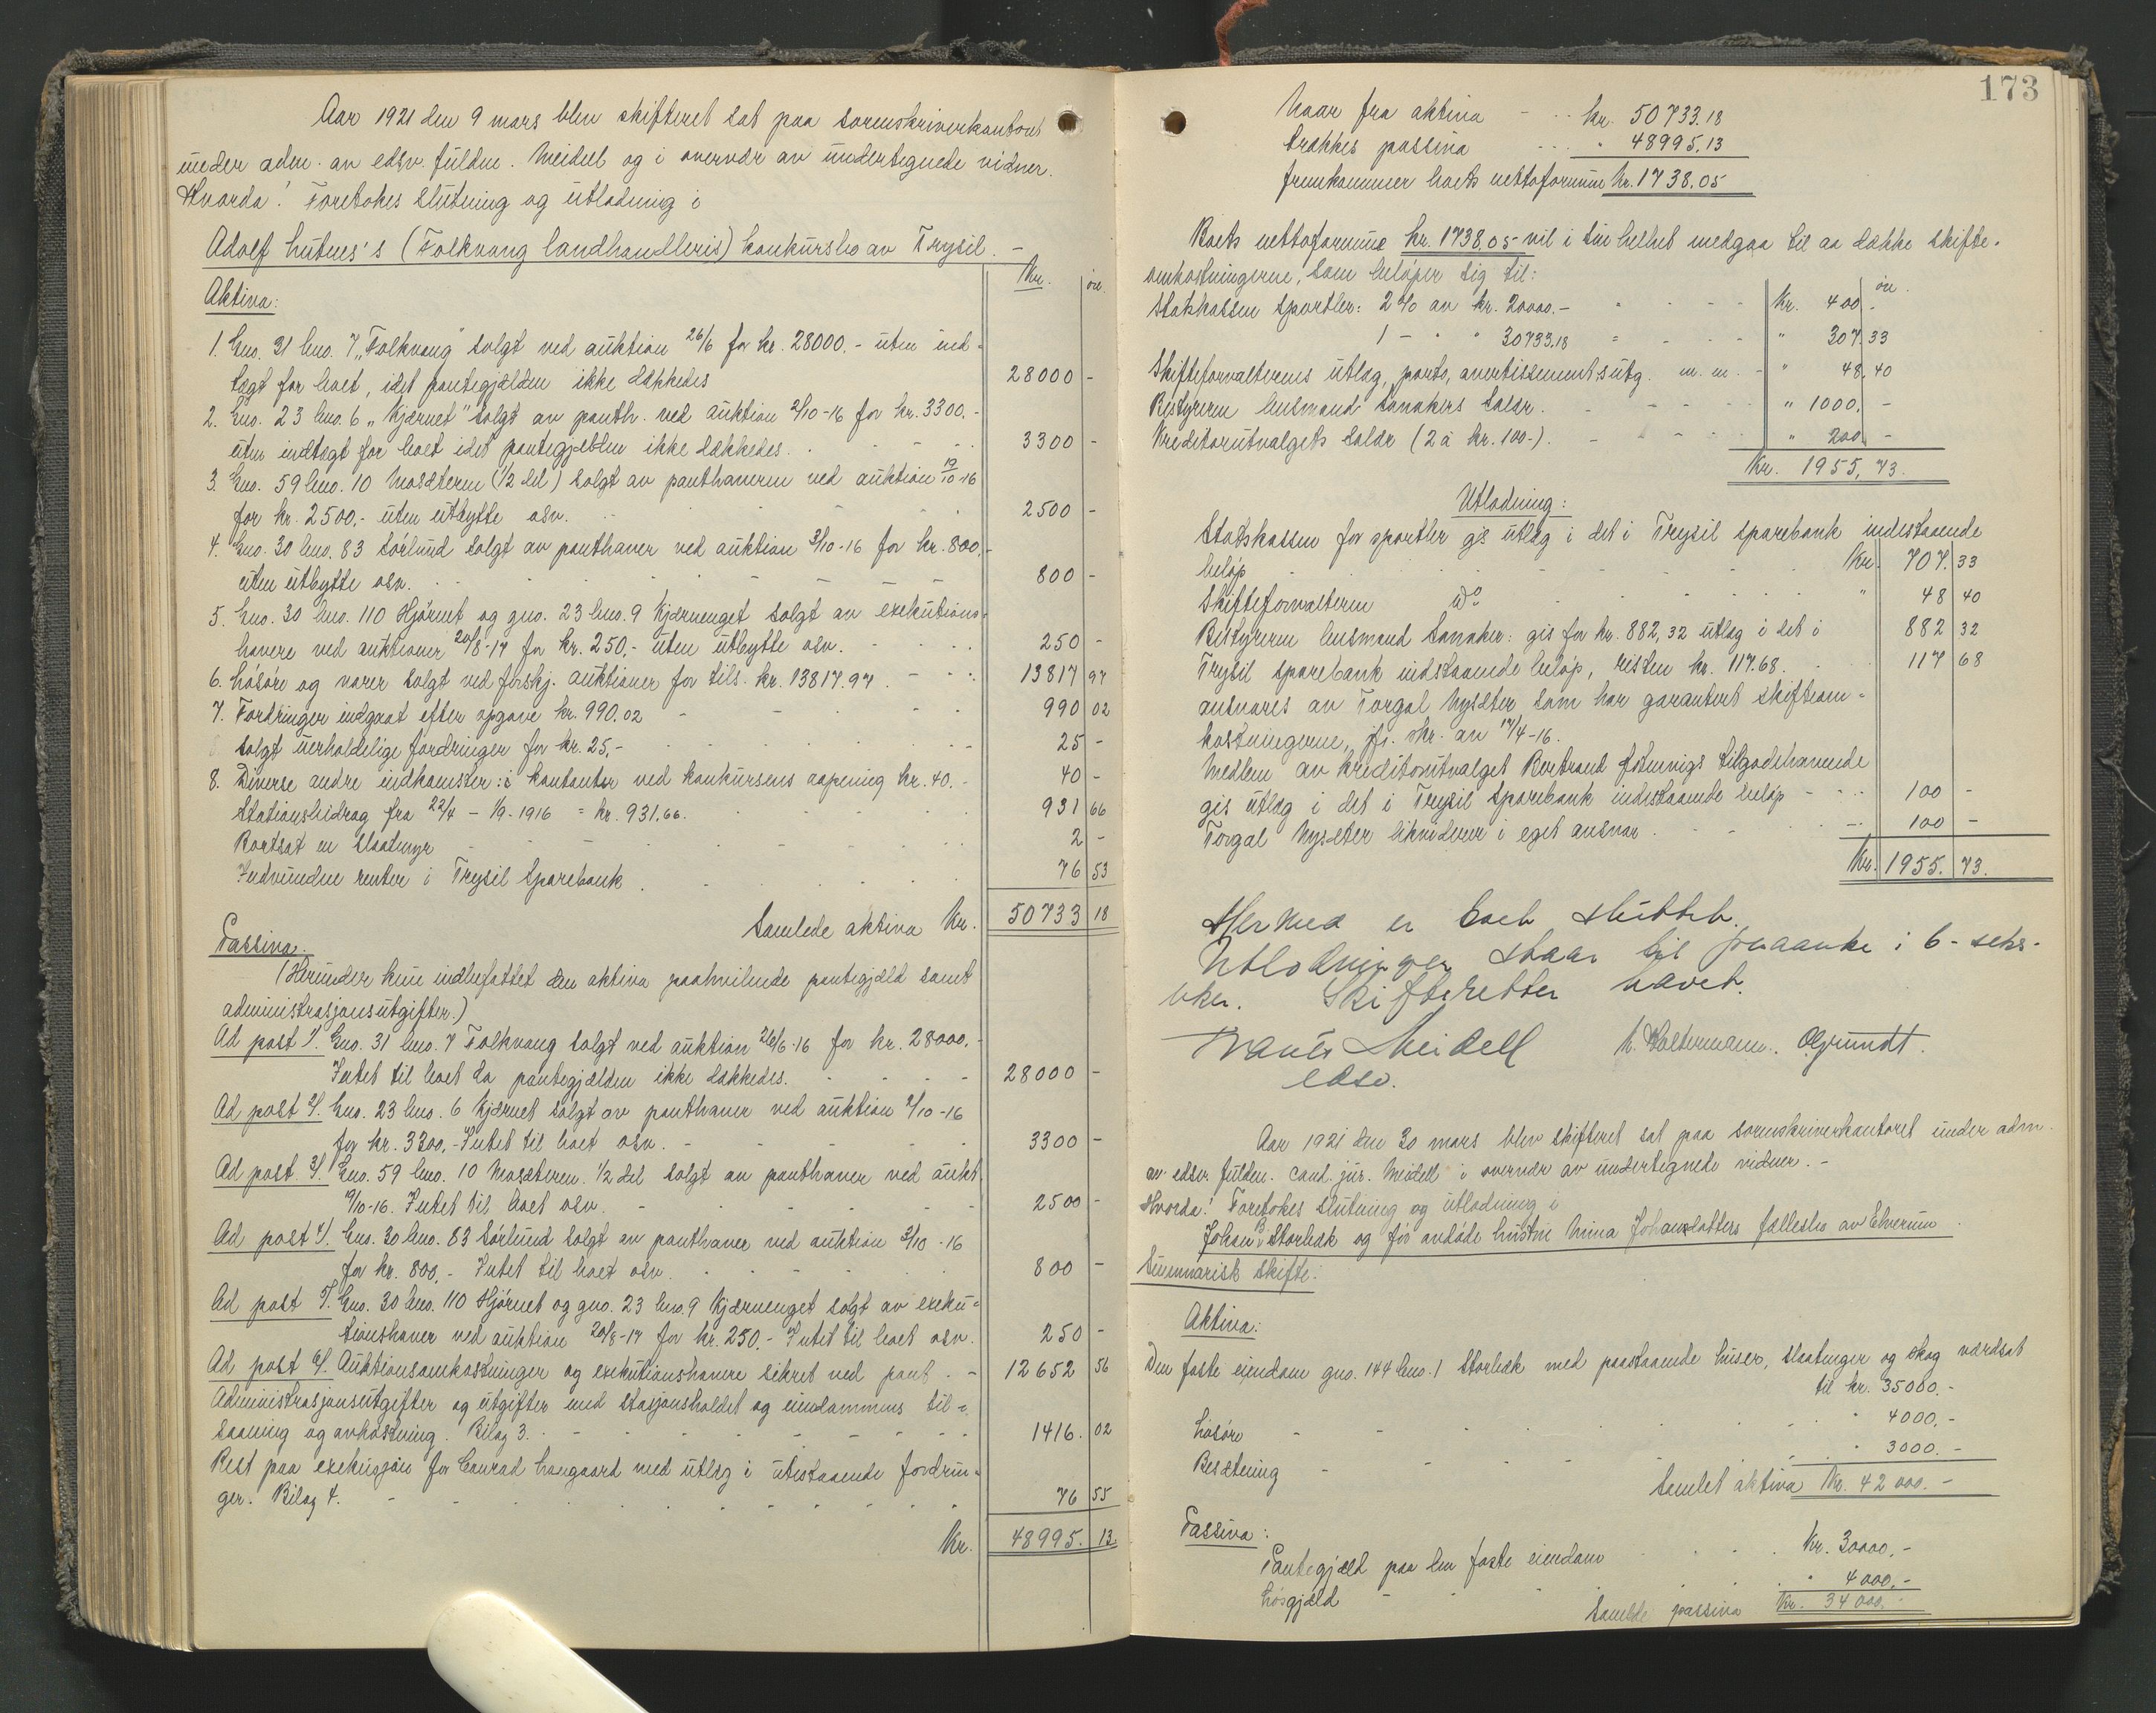 Aar 1921 den 9 mars blev skifteret sat paa sorenskriverkontoret
under adm. av edsv. fuldm. Meidell og i overvær av undertegnede vidner.
Hvorda! Foretokes slutning og utlodning i
Adolf Lutnes's (Folkvang landhandleris) konkursbo av Trysil. -
Kr. øre
Aktiva:
1. Gno. 31 bno. 7 "Folkvang" solgt ved auktion 26/6 for kr. 28000.- uten ind-
tægt for boet, idet pantegjælden ikke dækkedes 28000 -
2. Gno. 23 bno. 6 "Kjærnet" solgt av panth. ved auktion 2/10-16 for kr. 3300.-
uten indtægt for boet idet pantegjælden ikke dækkedes. 3300 -
3. Gno. 59 bno. 10 Mosæteren (1/2 del) solgt av panthaveren ved auktion 19/10-16
for kr. 2500.- uten utbytte osv. 2500 -
4. Gno. 30 bno. 83 Sørlund solgt av panthaver ved auktion 3/10-16 for kr. 800.-
uten utbytte osv. 800 -
5. Gno. 30 bno. 110 Hjørnet og gno. 23 bno. 9 Kjærnenget solgt av exekutions-
havere ved auktioner 20/8-17 for kr. 250.- uten utbytte osv. 250 -
6. Løsøre og varer solgt ved forskj. auktioner for tils. kr. 13817.97. 13817 97
7. Fordringer indgaat efter opgave kr. 990.02 990 02
solgt uerholdelige fordringer for kr. 25.- 25 -
8. Diverse andre indkomster: i kontanter ved konkursens aapning kr. 40.- 40 -
Stationsbidrag fra 22/4 - 1/9. 1916 = kr. 931.66. 931 66
Bortsat en slaatmyr 2 -
Indvundne renter i Trysil Sparebank 76 53
Samlede aktiva Kr. 50733 18
Passiva:
(Herunder kun indbefattet den aktiva paahvilende pantegjæld samt
administrasjonsutgifter.)
Ad post 1/. Gno. 31 bno. 7 Folkvang solgt ved auktion 26/6-16 for kr. 28000.-
Intet til boet da pantegjælden ikke dækkedes. 28000 -
Ad post 2/. Gno. 23 bno. 6 Kjærnet solgt av panthaver ved auktion 2/10-16
for kr. 3300.- Intet til boet osv. 3300 -
Ad post 3/. Gno. 59 bno. 10 Mosæteren 1/2 del solgt av panthaver ved aukt.
19/10-16. Intet til boet osv. 2500 -
Ad post 4/. Gno. 30 bno. 83 Sørlund solgt av panthaver ved auktion 3/10-16
for kr. 800.- Intet til boet osv. 800 -
Ad post 5/. Gno. 30 bno. 110 Hjørnet og gno. 23 bno. 9 Kjærnenget solgt av exeku-
tionshaver ved auktion 20/8-17 for kr. 250.- Intet til boet osv. 250 -
Ad post 6/. Auktionsomkostninger og exekutionshavere sikret ved pant. - 12652 56
Administrasjonsutgifter og utgifter med stasjonsholdet og eiendommens til-
saaning og avhøstning. Bilag 3. 1416. 02
Rest paa exekusjon for Conrad Langaard med utlæg i utestaaende fordrin-
ger. Bilag 4. 76 55
Kr. 48995. 13.
173
Naar fra aktiva kr. 50733.18
trækkes passiva " 48995.13
fremkommer boets nettoformue kr. 1738.05
Boets nettoformue kr. 1738.05 vil i sin helhet medgaa til aa dække skifte-
omkostningerne, som beløper sig til:
øre.
Statskassen sportler: 2 % av kr. 20000.- Kr. 400 -
1 - " " 30733.18 " 307 33
Skifteforvalterens utlæg, porto, avertissementsutg. m. m. " 48. 40
Bestyreren lensmand Sanakers salær. " 1000. -
Kreditorutvalgets salær (2 à kr. 100-). " 200. -
Kr. 1955,73.
Utlodning:
Statskassen for sportler gis utlæg i det i Trysil sparebank indestaaende
beløp Kr. 707. 33
Skifteforvalteren do " 48 40
Bestyreren lensmand Sanaker: gis for kr. 882,32 utlæg i det i 882 32
Trysil sparebank indstaaende beløp, resten kr. 117.68. 117 68
ansvares av Torgal Nysæter som har garantert skifteom-
kostningerne, jfr. skr. av 17/4-16.
Medlem av kreditorutvalget Bertrand tilgodehavende
gis utlæg i det i Trysil Sparebank indestaaende beløp 100 -
Torgal Nysæter likviderer i eget ansvar. 100 -
Kr. 1955. 73.
Hermed er boet sluttet.
Utlodningen staar til paaanke i 6-seks-
uker. Skifteretten hævet.
Meidell M. Haltermann. O. Grundt.
edsv.
Aar 1921 den 30 mars blev skifteret sat paa sorenskriverkontoret under adm.
av edsv. fuldm. cand. jur. Meidell i overvær av undertegnede vidner. -
Hvorda! Foretokes slutning og utlodning i
Johan B. Storbæk og før avdøde hustru Mina Johansdatters fællesbo av Elverum.
Summarisk skifte:
Aktiva:
Den faste eiendom gno. 144 bno. 1 Storbæk med paastaaende huser, slaatenger og skog værdsat
til kr. 35000.-
Løsøre " 4000.-
Besætning " 3000.-
Samlet aktiva Kr. 42000.-
Passiva:
Pantegjæld paa den faste eiendom Kr. 30000.-
Løsgjæld " 4000.-
Samlede passiva Kr. 34000.-